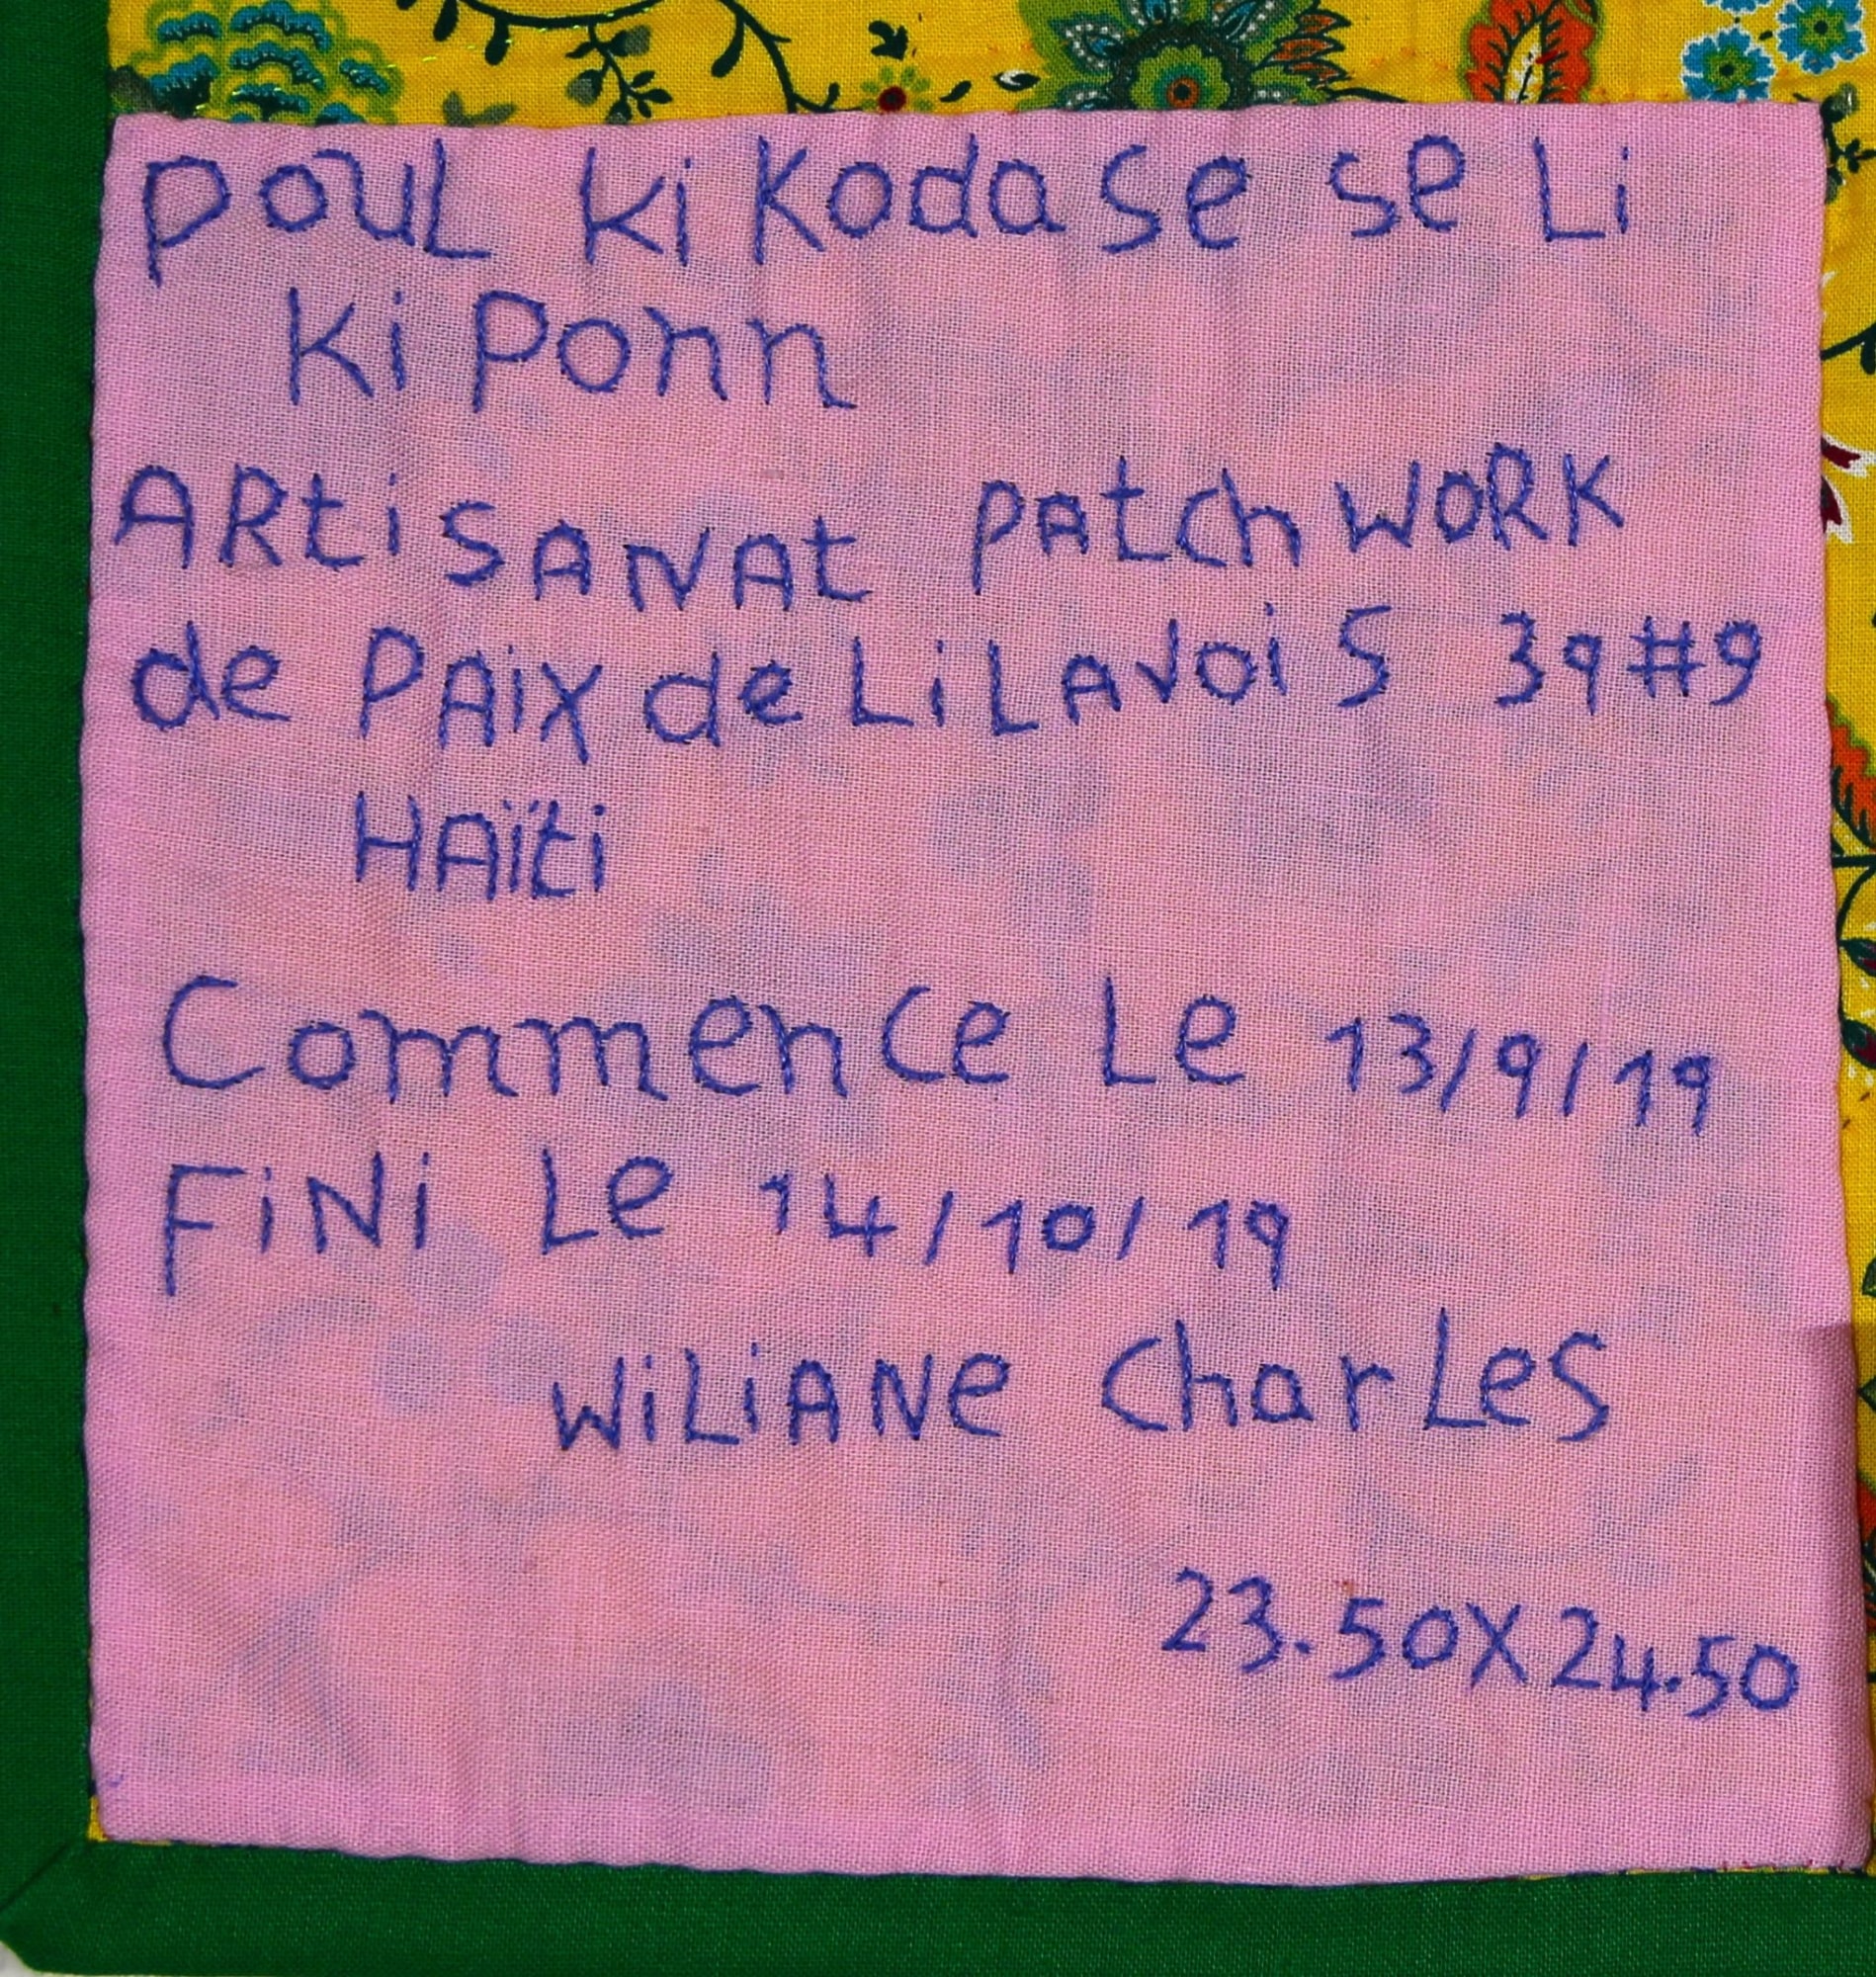 Poul ki kodase se Li
ki Ponn
ARtiSANAt PAtchWORK
de PAix de LiLAVoiS 39#9
HAïti
Commence Le 13/9/19
FiNi Le 14/10/19
WiLiANe CharLeS
23.50X24.50